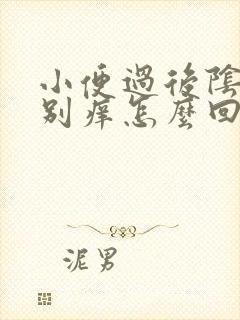 小便過後陰
別痒怎麼回
泥男